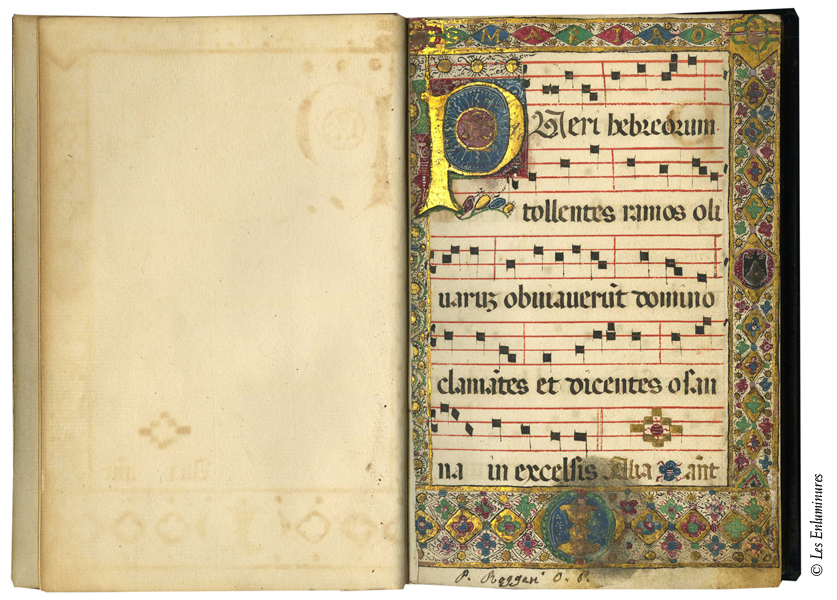 Pueri hebreorum
tollentes ramos oli
uaruz obuiauerūt domino
clamātes et dicentes osan
na in excelsis Alia ānt
P. Roggeri O. P.
© Les Enluminures